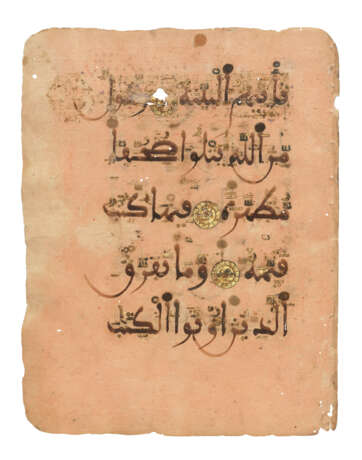 تأتيهم البينة رسول
من الله يتلوا صحفا
مطهرة فيها كتب
قيمة وما تفرق
الذين اوتوا الكتب